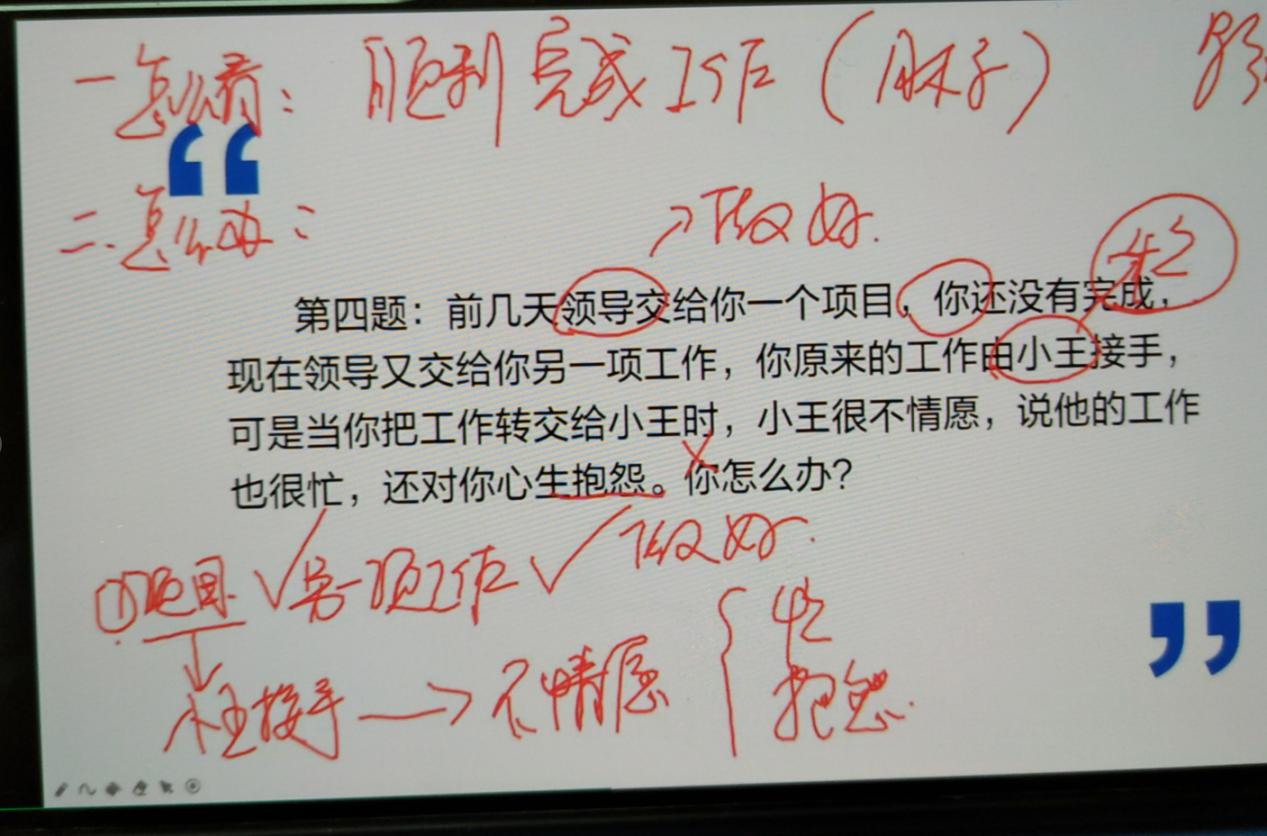 一怎么看：顺利完成工作（胖子）
二.怎么办：
做好.
第四题：前几天领导交给你一个项目，你还没有完成，
现在领导又交给你另一项工作，你原来的工作由小王接手，
可是当你把工作转交给小王时，小王很不情愿，说他的工作
也很忙，还对你心生抱怨。你怎么办？
①项目 另一项工作 做好.
小王接手 不情愿 忙
抱怨.